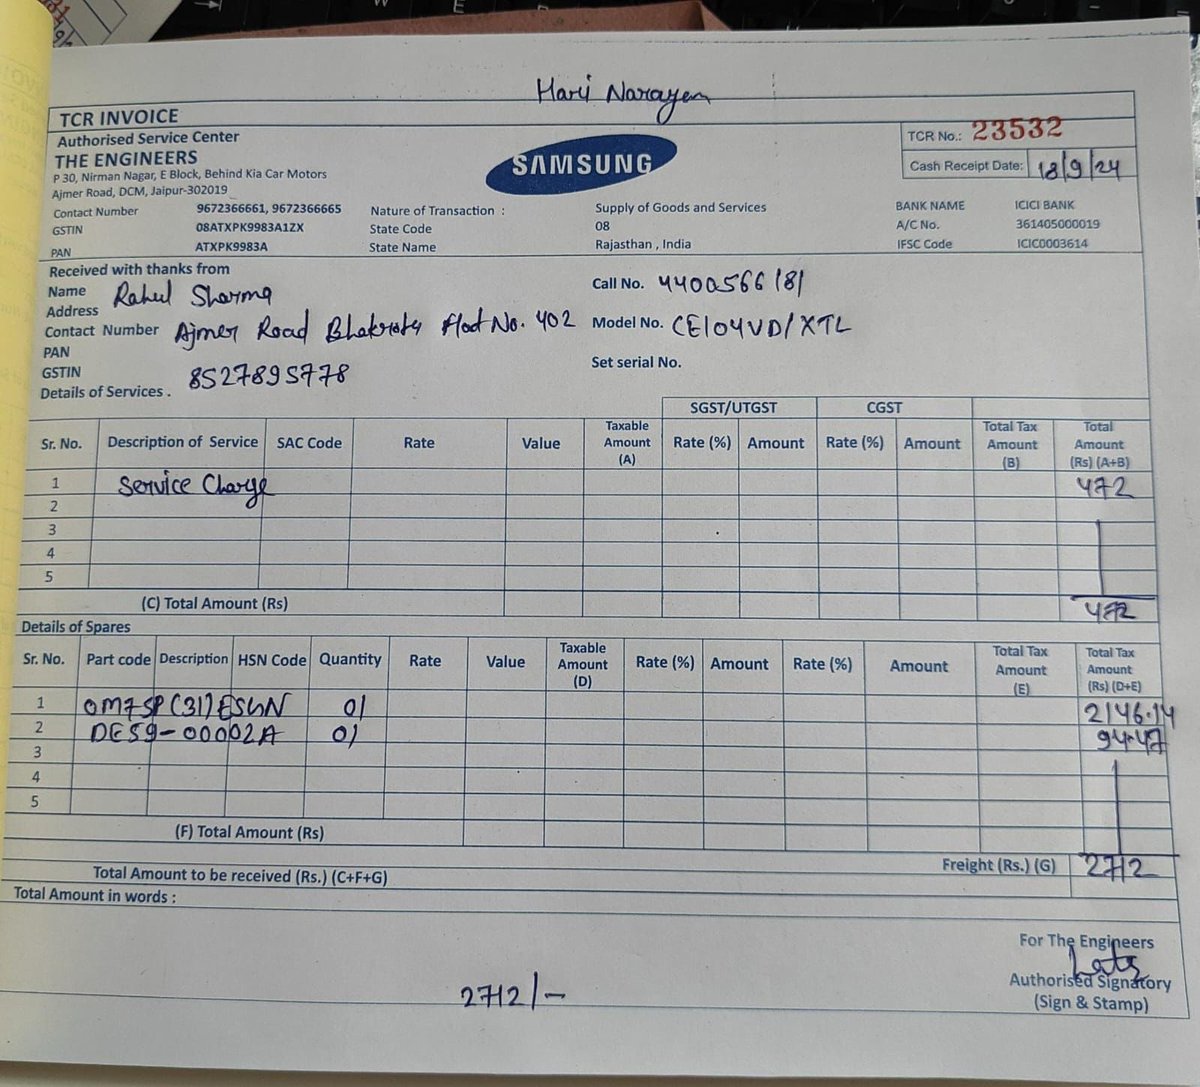 Hari Narayan
TCR INVOICE
Authorised Service Center
THE ENGINEERS
P 30, Nirman Nagar, E Block, Behind Kia Car Motors
Ajmer Road, DCM, Jaipur-302019
SAMSUNG
TCR No.: 23532
Cash Receipt Date: 18/9/24
Contact Number 9672366661, 9672366665 Nature of Transaction : Supply of Goods and Services BANK NAME ICICI BANK
GSTIN 08ATXPK9983A1ZX State Code 08 A/C No. 361405000019
PAN ATXPK9983A State Name Rajasthan , India IFSC Code ICIC0003614
Received with thanks from
Name Rahul Sharma Call No. 4400566181
Address
Contact Number Ajmer Road Bhakrota flat No. 402 Model No. CE104VD/XTL
PAN
GSTIN 8527895778 Set serial No.
Details of Services .
SGST/UTGST CGST
Sr. No. Description of Service SAC Code Rate Value Taxable Amount (A) Rate (%) Amount Rate (%) Amount Total Tax Amount (B) Total Amount (Rs) (A+B)
1 Service Charge 472
2
3
4
5
(C) Total Amount (Rs) 472
Details of Spares
Sr. No. Part code Description HSN Code Quantity Rate Value Taxable Amount (D) Rate (%) Amount Rate (%) Amount Total Tax Amount (E) Total Tax Amount (Rs) (D+E)
1 OM75P(31)ESGN 01 2146.14
2 DE59-00002A 01 94.47
3
4
5
(F) Total Amount (Rs)
Freight (Rs.) (G) 2712
Total Amount to be received (Rs.) (C+F+G)
Total Amount in words :
For The Engineers
Authorised Signatory
(Sign & Stamp)
2712/-